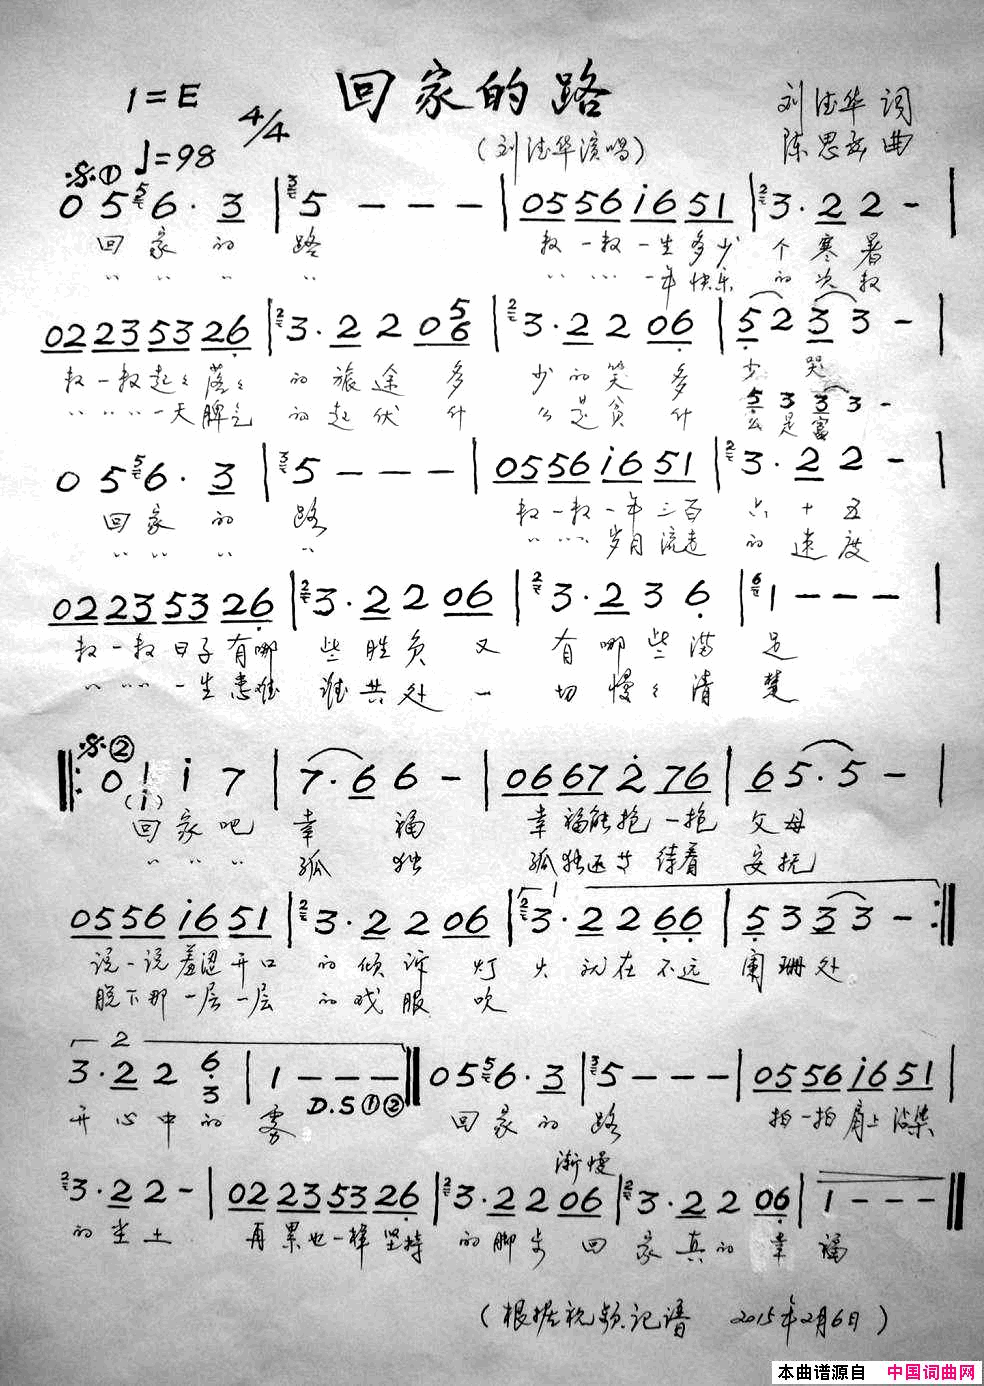 回家的路
1=E 4/4
刘德华 词
♩=98
(刘德华演唱)
陈思函 曲
𝄋①
0 5 5 6 · 3 | 3 5 - - - | 0556 i6 51 | 2 3 · 2 2 - |
回家的路 数一数一生多少个寒暑
〃 〃 〃 〃 〃 〃 〃 一年快乐的次数
02 23 53 26 | 2 3 · 2 2 0 5 6 | 2 3 · 2 2 06 | 5 2 3 3 - |
数一数起々落々的旅途 多少的笑 多少哭
〃 〃 〃 一天脾气的起伏 什么是贫 什
5 3 3 3 -
么是富
0 5 5 6 · 3 | 3 5 - - - | 0556 i6 51 | 2 3 · 2 2 - |
回家的路 数一数一年三百六十五
〃 〃 〃 〃 〃 〃 〃 岁月流逝的速度
02 23 53 26 | 2 3 · 2 2 06 | 2 3 · 2 3 6 | 6 1 - - - |
数一数日子有哪些胜负 又有哪些满足
〃 〃 〃 一生患难谁共处 一切慢々清楚
𝄋②
0 i i 7 | 7 · 6 6 - | 06 67 2 76 | 6 5 · 5 - |
(i)
回家吧 幸福 幸福能抱一抱父母
〃 〃 〃 孤独 孤独还等待着安抚
0556 i6 51 | 2 3 · 2 2 06 | 1 2 3 · 2 2 66 | 5 3 3 3 - :|
说一说羞涩开口的倾诉 灯火就在不远阑珊处
脱下那一层一层的戏服 吹
2
3 · 2 2 6 3 | 1 - - - | 0 5 5 6 · 3 | 3 5 - - - | 0556 i6 51 |
D.S ①②
开心中的雾 回家的路 拍一拍肩上沾染
渐慢
2 3 · 2 2 - | 02 23 53 26 | 2 3 · 2 2 06 | 2 3 · 2 2 06 | 1 - - - ‖
的尘土 再累也一样坚持的脚步 回家真的幸福
(根据视频记谱 2015年2月6日)
本曲谱源自 中国词曲网